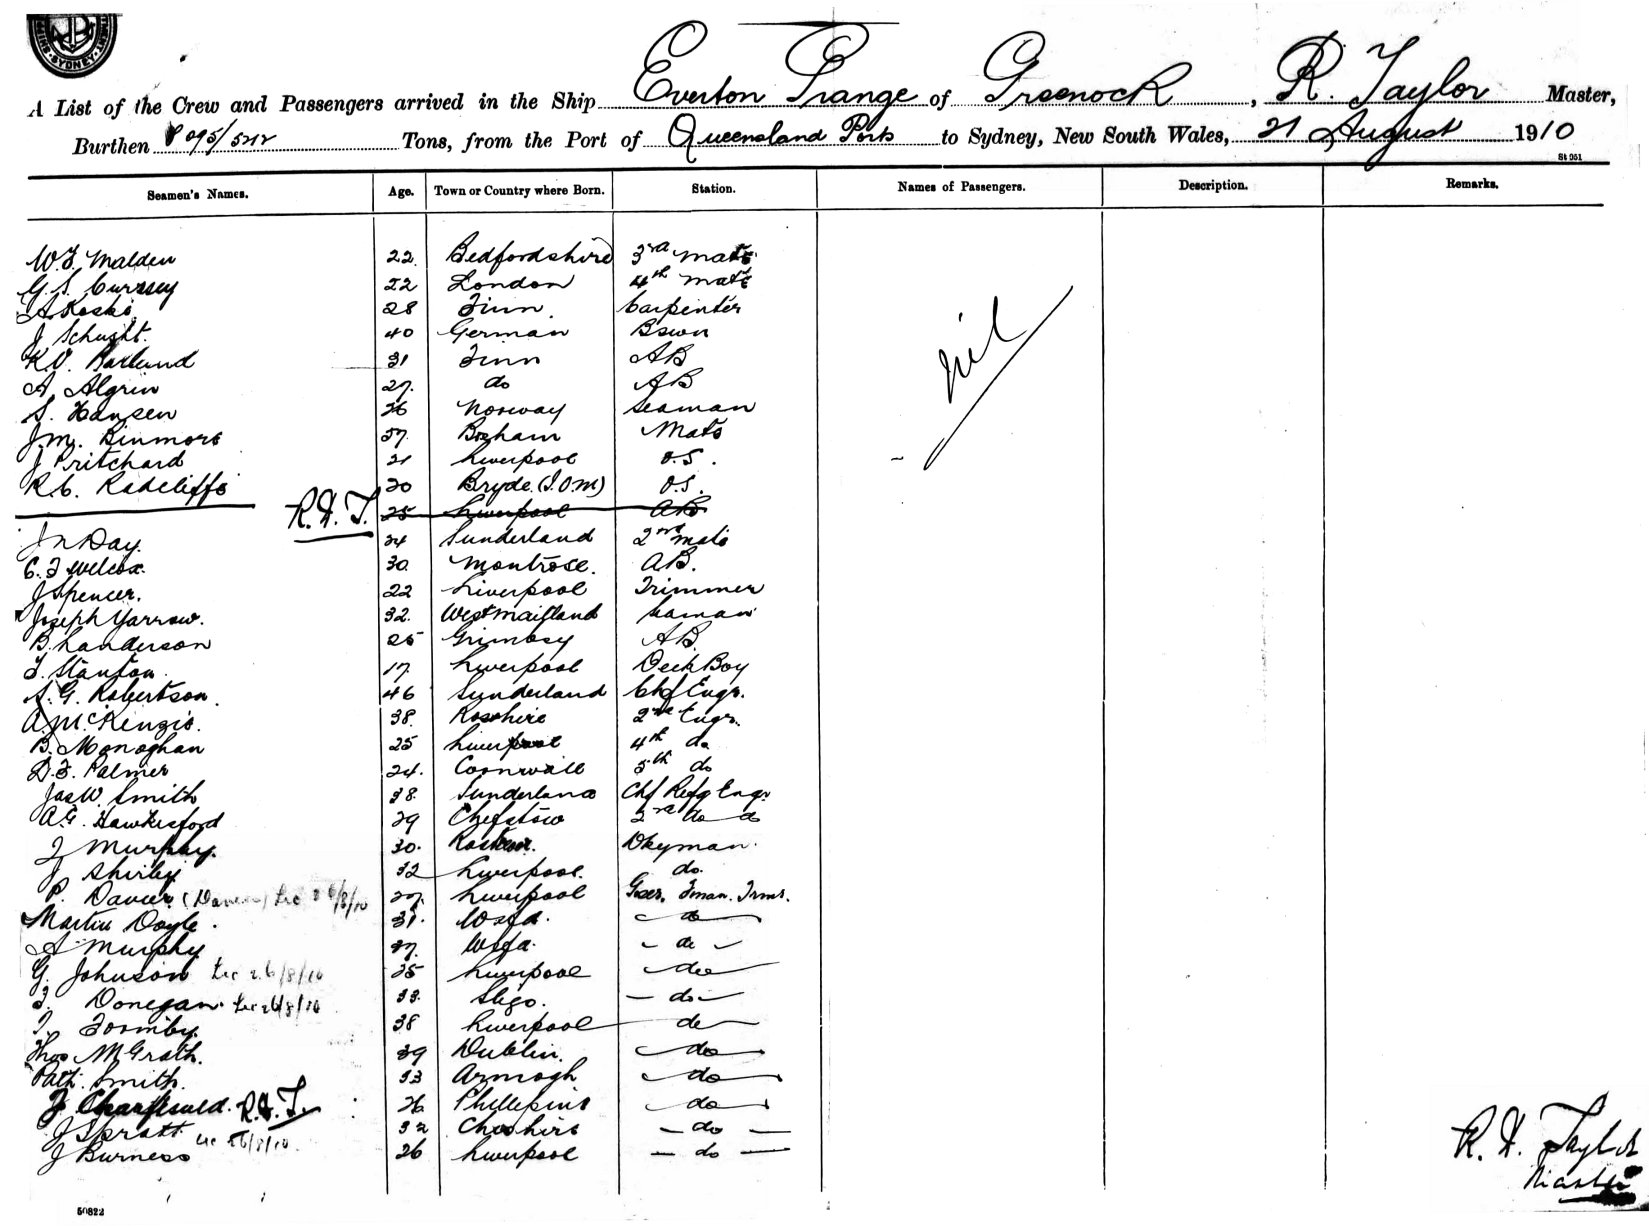 A List of the Crew and Passengers arrived in the Ship Everton Grange of Greenock, R. Taylor Master,
Burthen 8095/5212 Tons, from the Port of Queensland Ports to Sydney, New South Wales, 21 August 1910
St 951
Seamen's Names. Age. Town or Country where Born. Station. Names of Passengers. Description. Remarks.
W. F. Malden 22. Bedfordshire 3rd mate
G. S. 22 London 4th mate
A Koski 28 Finn. Carpenter
J Schught. 40 German Bswn
K. V. Barlund 31 Finn AB
A. Algrin 27. do AB
S. Hansen 26 Norway Seaman
J. M. Binmore 37. Mate
J Pritchard 21 Liverpool O.S.
R. C. Radcliffe 20 Bryde. (I.O.M) O.S.
R. H. T. 25 Liverpool AB
J N Day. 24 Sunderland 2nd mate
C. F Wilcox. 30 Montrose. AB.
J Spencer. 22 Liverpool Trimmer
Joseph Yarrow. 32. West Maitland Seaman
B. Landerson 25 Grimbsy AB.
F. Stanton. 17. Liverpool Deck Boy
A. G. Robertson. 46 Sunderland Chf Engr.
A. McKenzie. 38. Rosshire 2nd Engr.
B. Monoghan 25 Liverpool 4th do
D. F. Palmer 24. Cornwall 5th do
Jas W. Smith 38. Sunderland Chf Refg Engr
A. G. Hawkesford 29 Chepstow 2nd do do
J Murphy. 30. Dkyman.
J Shirley 32 Liverpool. do.
P. Davies 27. Liverpool Gser. Fman. Trmr.
Martin Doyle. 31. Wxfd. do
A Murphy 37. Wxfd. - do -
G. Johnson 26/8/10 25 Liverpool do
Donegan. 26/8/10 33. Sligo. - do -
T. Formby. 38 Liverpool do
Thos McGrath. 39 Dublin. do
Patk. Smith. 33 Armagh do
J. R. H. T. 26 Phillepins do
J Spratt 26/8/10 32 Cheshire - do -
J Burness 26 Liverpool - do -
nil
R. H. Taylor
Master
50822